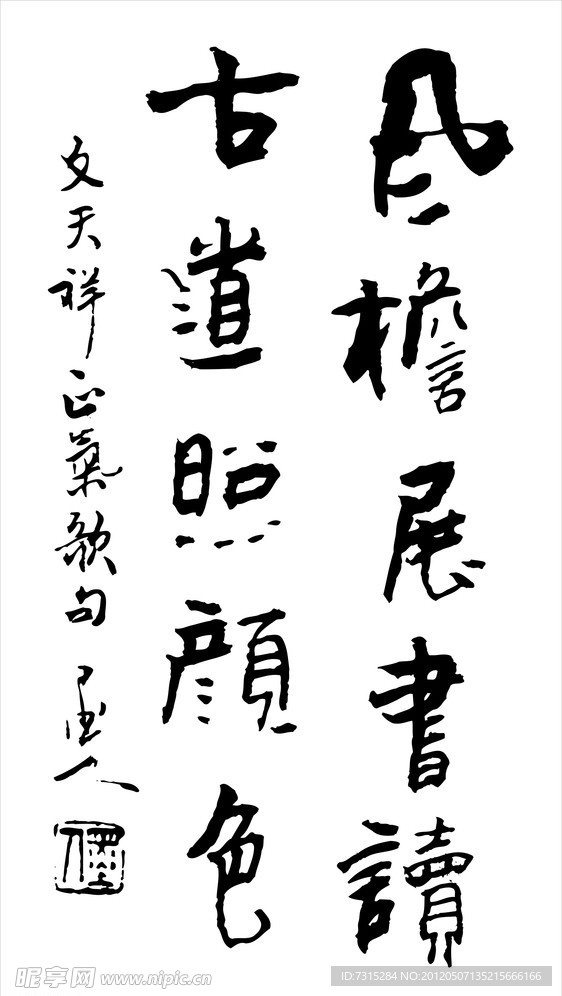 风檐展書讀
古道照顔色
文天祥正氣歌句
人
昵享网 www.nipic.cn
ID:7315284 NO:20120507135215666166